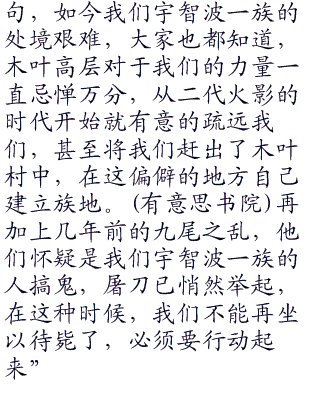 句，如今我们宇智波一族的
处境艰难，大家也都知道，
木叶高层对于我们的力量一
直忌惮万分，从二代火影的
时代开始就有意的疏远我
们，甚至将我们赶出了木叶
村中，在这偏僻的地方自己
建立族地。(有意思书院)再
加上几年前的九尾之乱，他
们怀疑是我们宇智波一族的
人搞鬼，屠刀已悄然举起，
在这种时候，我们不能再坐
以待毙了，必须要行动起
来”